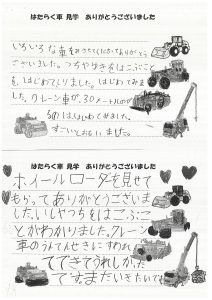 はたらく車 見学　ありがとうございました
いろいろな車をみせてくださってありがとう
ございました。つちやゆきをはこぶこと
を、はじめてしりました。はじめてみま
した。クレーン車が、30メートルの
ものはじめてみました。
すごいとおもいました。
はたらく車 見学　ありがとうございました
ホイールローダを見せて
もらってありがとうございま
した。いしやつちをはこぶこ
とがわかりました。クレーン
車のうんてんせきにすわれ
てできてうれしかった
ですまたいきたいです